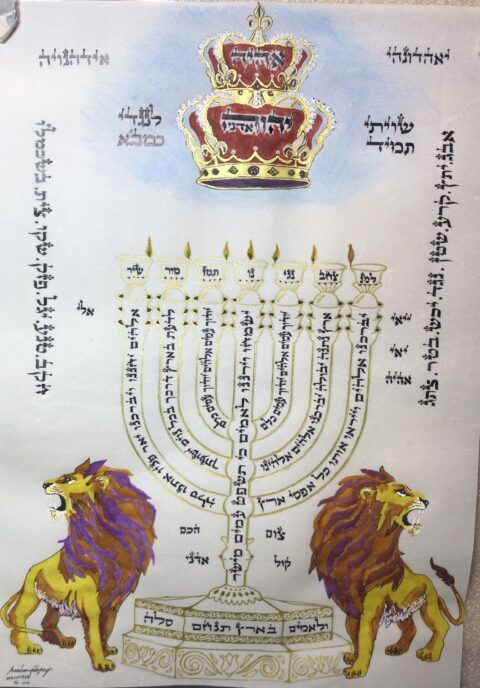 יאהדונהי
אהיה
אידהנויה
יהוה
אדני
שויתי
תמיד
אבג.יתץ.קרע.שטן.נגד.יכש.בטר.צתג
למנ צחב נגי נו תמז מור שיר
יברכנו אלהים וייראו אותו כל אפסי ארץ
ארץ נתנה יבולה יברכנו אלהים אלהינו
יודוך עמים אלהים יודוך עמים כלם
ישמחו וירננו לאמים כי תשפט עמים מישר
יודוך עמים אלהים יודוך עמים כלם
לדעת בארץ דרכך בכל גוים ישועתך
אלהים יחננו ויברכנו יאר פניו אתנו סלה
אלי
צום
קול אדני
ולאמים בארץ תנחם סלה